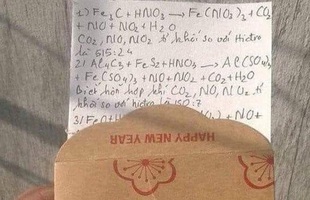 1) Fe3C + HNO3 → Fe(NO2)3 + CO2
+ NO + NO2 + H2O
CO2, NO, NO2 tỉ khối so với Hiđro
là 515:24
2) Al4C3 + FeS2 + HNO3 → Al(SO4)3
+ Fe(SO4)3 + NO + NO2 + CO2 + H2O
Biết hỗn hợp khí CO2, NO, NO2 tỉ
khối so với hiđro là 150:7
3) + NO +
HAPPY NEW YEAR